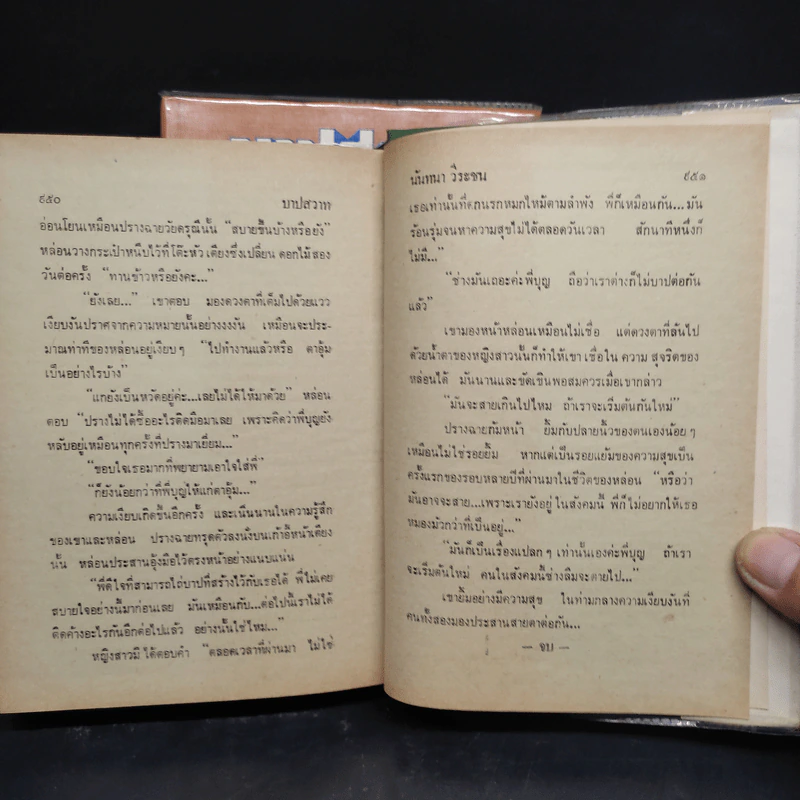 ๙๕๐
บาปสวาท
อ่อนโยนเหมือนปรางฉายวัยดรุณีนั้น “สบายขึ้นบ้างหรือยัง”
หล่อนวางกระเป๋าหนีบไว้ที่โต๊ะหัวเตียงซึ่งเปลี่ยน ดอกไม้สอง
วันต่อครั้ง “ทานข้าวหรือยังคะ...”
“ยังเลย...” เขาตอบ มองดวงตาที่เต็มไปด้วยแวว
เงียบงันปราศจากความหมายนั้นอย่างงงงัน เหมือนจะประ-
มาณท่าทีของหล่อนอยู่เงียบๆ “ไปทำงานแล้วหรือ ตาอุ้ม-
เป็นอย่างไรบ้าง”
“แกยังเป็นหวัดอยู่ค่ะ...เลยไม่ได้ให้มาด้วย” หล่อน
ตอบ “ปรางไม่ได้ซื้ออะไรติดมือมาเลย เพราะคิดว่าพี่บุญยัง
หลับอยู่เหมือนทุกครั้งที่ปรางมาเยี่ยม...”
“ขอบใจเธอมากที่พยายามเอาใจใส่พี่”
“ก็ยังน้อยกว่าที่พี่บุญให้แก่ตาอุ้ม...”
ความเงียบเกิดขึ้นอีกครั้ง และเนิ่นนานในความรู้สึก
ของเขาและหล่อน ปรางฉายทรุดตัวลงนั่งบนเก้าอี้หน้าเตียง
นั้น หล่อนประสานอุ้งมือไว้ตรงหน้าอย่างแนบแน่น
“พี่ดีใจที่สามารถไถ่บาปที่สร้างไว้กับเธอได้ พี่ไม่เคย
สบายใจอย่างนี้มาก่อนเลย มันเหมือนกับ...ต่อไปนี้เราไม่ได้
ติดค้างอะไรกันอีกต่อไปแล้ว อย่างนั้นใช่ไหม...”
หญิงสาวมิได้ตอบคำ “ตลอดเวลาที่ผ่านมา ไม่ใช่
นันทนา วีระชน
๙๕๑
เธอเท่านั้นที่ตกนรกหมกไหม้ตามลำพัง พี่ก็เหมือนกัน...มัน
ร้อนรุ่มจนหาความสุขไม่ได้ตลอดวันเวลา สักนาทีหนึ่งก็
ไม่มี...”
“ช่างมันเถอะค่ะพี่บุญ ถือว่าเราต่างก็ไม่บาปต่อกัน
แล้ว”
เขามองหน้าหล่อนเหมือนไม่เชื่อ แต่ดวงตาที่ล้นไป
ด้วยน้ำตาของหญิงสาวนั้นก็ทำให้เขา เชื่อใน ความ สุจริตของ
หล่อนได้ มันนานและขัดเขินพอสมควรเมื่อเขากล่าว
“มันจะสายเกินไปไหม ถ้าเราจะเริ่มต้นกันใหม่”
ปรางฉายก้มหน้า ยิ้มกับปลายนิ้วของตนเองน้อยๆ
เหมือนไม่ใช่รอยยิ้ม หากแต่เป็นรอยแย้มของความสุขเป็น
ครั้งแรกของรอบหลายปีที่ผ่านมาในชีวิตของหล่อน “หรือว่า
มันอาจจะสาย...เพราะเรายังอยู่ในสังคมนี้ พี่ก็ไม่อยากให้เธอ
หมองมัวกว่าที่เป็นอยู่...”
“มันก็เป็นเรื่องแปลกๆ เท่านั้นเองค่ะพี่บุญ ถ้าเรา
จะเริ่มต้นใหม่ คนในสังคมนี้ช่างลืมจะตายไป...”
เขายิ้มอย่างมีความสุข ในท่ามกลางความเงียบงันที่
คนทั้งสองมองประสานสายตาต่อกัน...
— จบ —